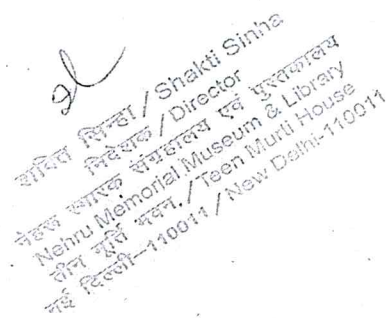 शक्ति सिन्हा / Shakti Sinha
निदेशक / Director
नेहरू स्मारक संग्रहालय एवं पुस्तकालय
Nehru Memorial Museum & Library
तीन मूर्ति भवन, / Teen Murti House
नई दिल्ली–110011 / New Delhi-110011